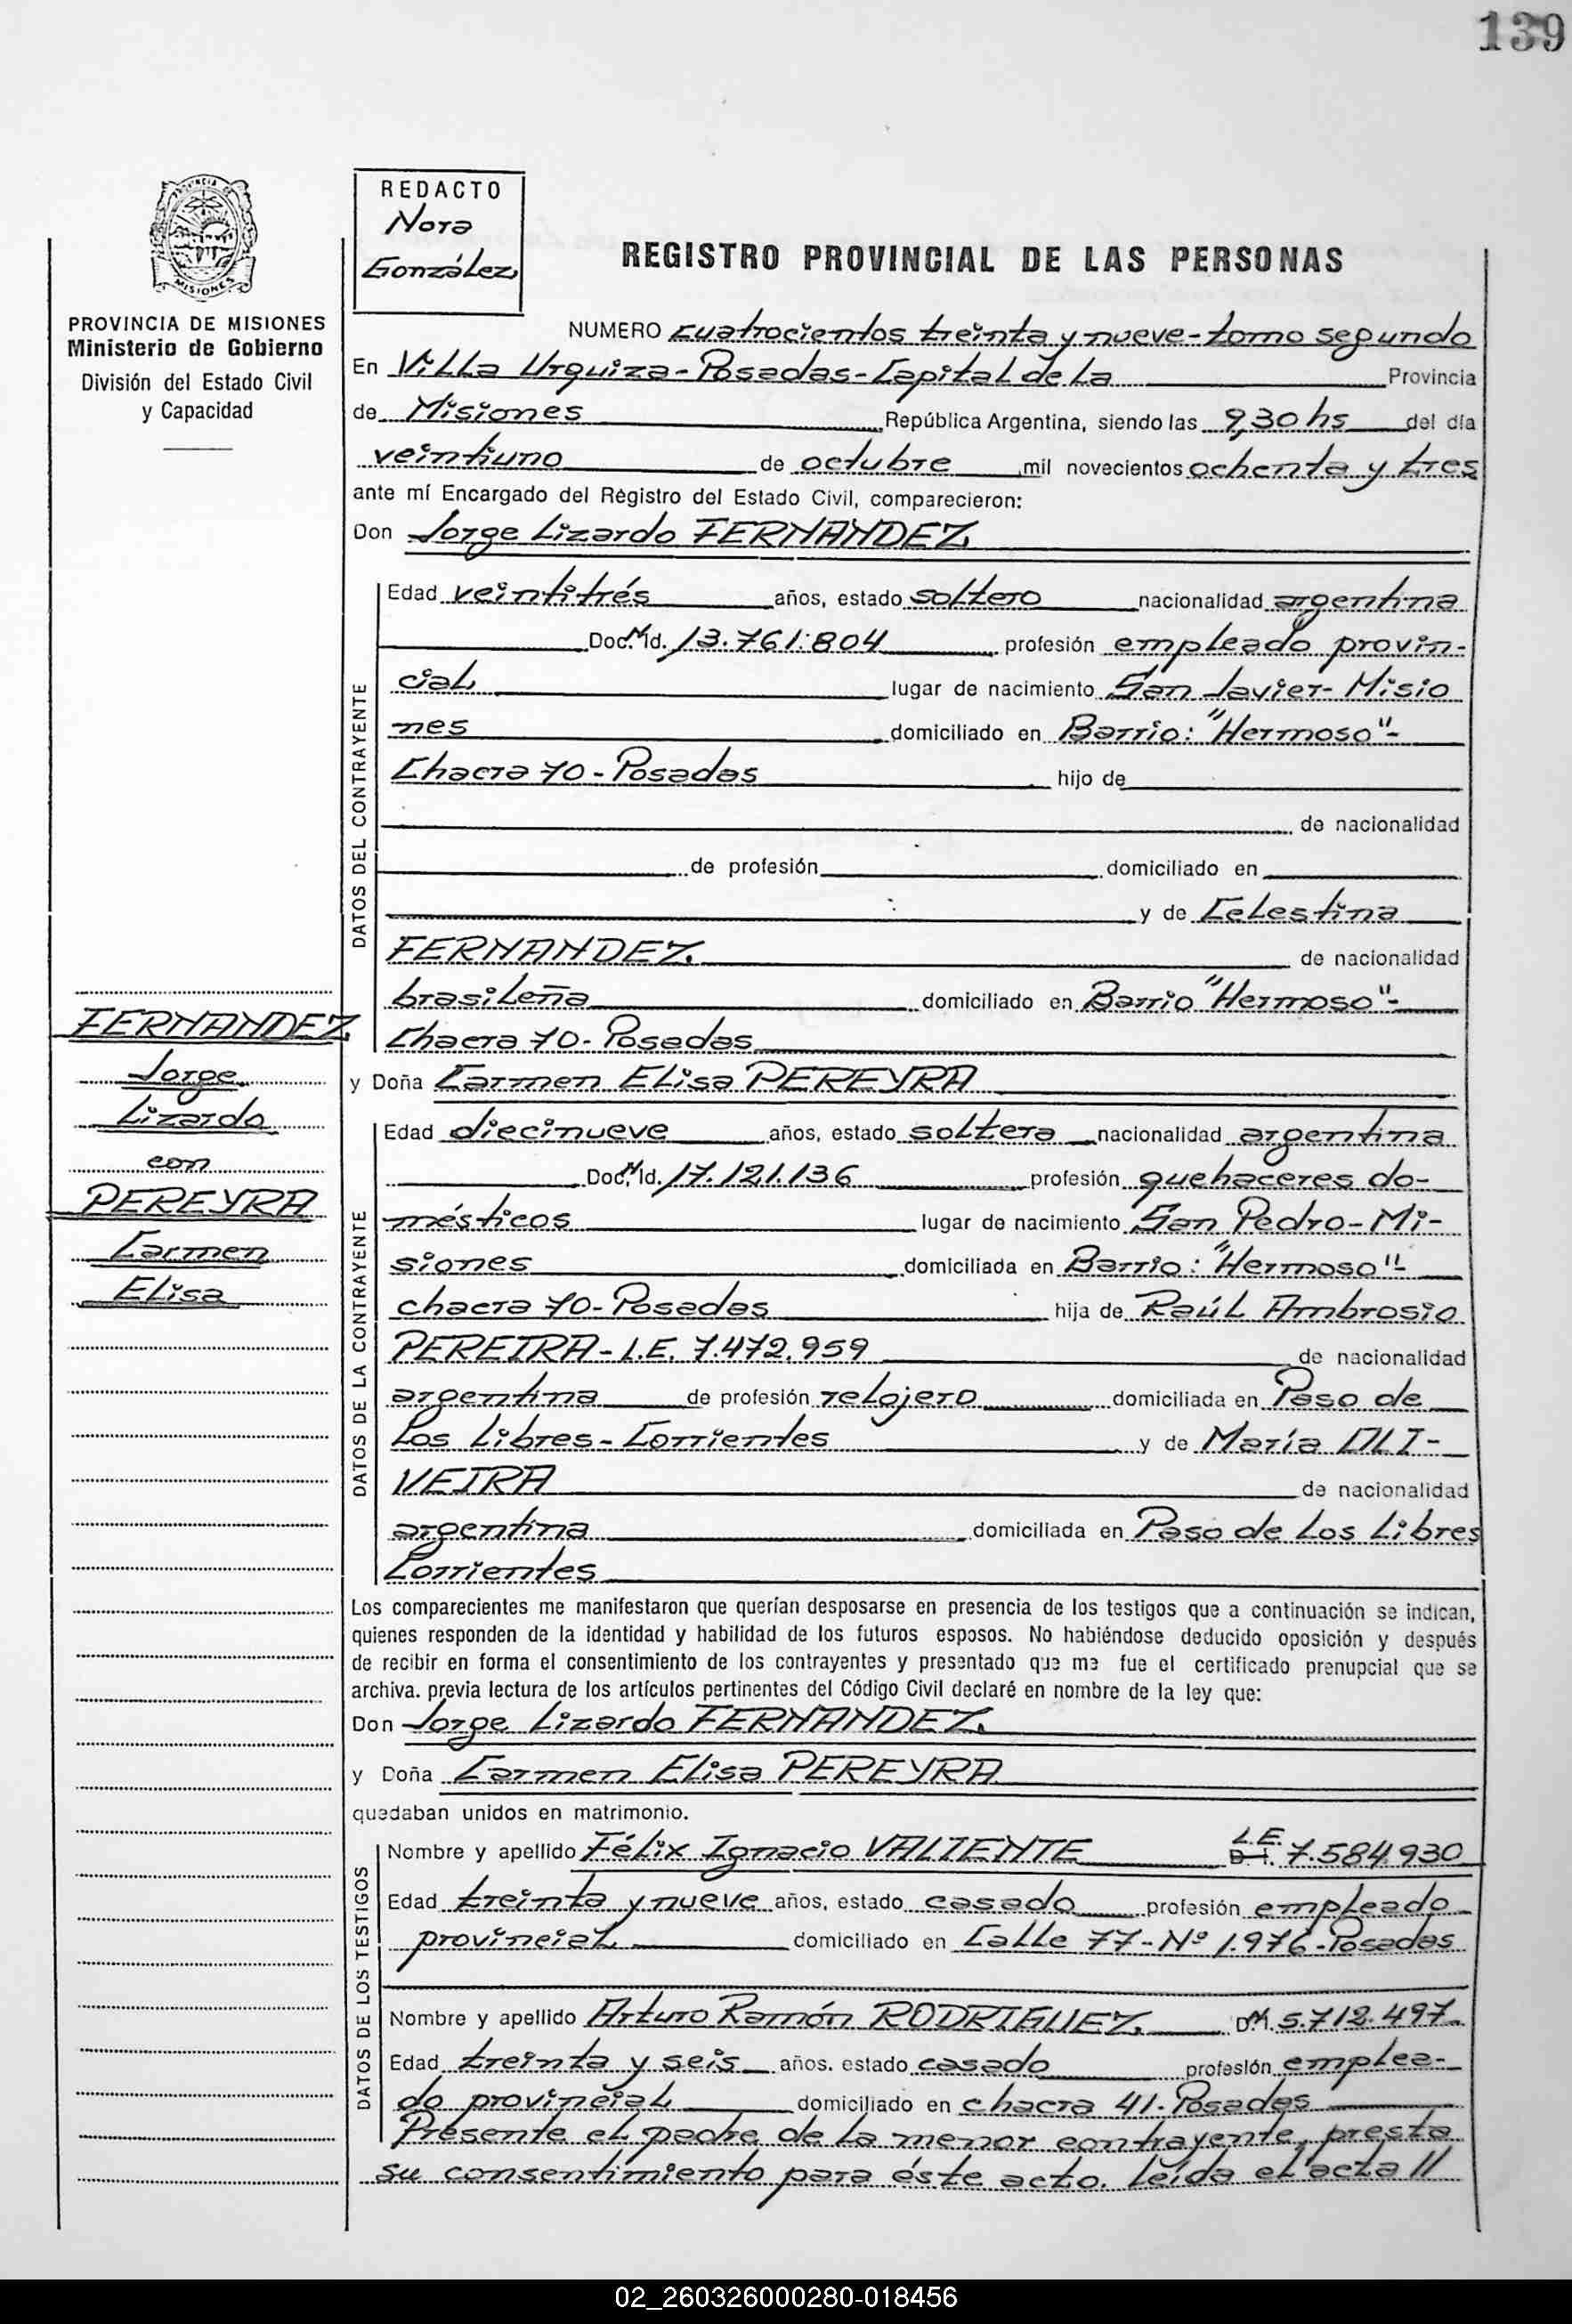 139
REDACTO
Nora
González
PROVINCIA DE MISIONES
MISIONES
PROVINCIA DE MISIONES
Ministerio de Gobierno
División del Estado Civil
y Capacidad
REGISTRO PROVINCIAL DE LAS PERSONAS
NUMERO cuatrocientos treinta y nueve-tomo segundo
En Villa Urquiza-Posadas-Capital de la Provincia
de Misiones República Argentina, siendo las 9,30 hs del día
veintiuno de octubre mil novecientos ochenta y tres
ante mí Encargado del Registro del Estado Civil, comparecieron:
Don Jorge Lizardo FERNANDEZ
DATOS DEL CONTRAYENTE
Edad veintitrés años, estado soltero nacionalidad argentina
Doc. Id. 13.761.804 profesión empleado provin-
cial lugar de nacimiento San Javier-Misio
nes domiciliado en Barrio: "Hermoso"-
Chacra 70-Posadas hijo de
de nacionalidad
de profesión domiciliado en
y de Celestina
FERNANDEZ. de nacionalidad
brasileña domiciliado en Barrio "Hermoso"-
Chacra 70-Posadas
FERNANDEZ
Jorge
Lizardo
con
PEREYRA
Carmen
Elisa
y Doña Carmen Elisa PEREYRA
DATOS DE LA CONTRAYENTE
Edad diecinueve años, estado soltera nacionalidad argentina
Doc. Id. 17.121.136 profesión quehaceres do-
mésticos lugar de nacimiento San Pedro-Mi-
siones domiciliada en Barrio: "Hermoso"-
chacra 70-Posadas hija de Raúl Ambrosio
PEREIRA-L.E. 7.472.959 de nacionalidad
argentina de profesión relojero domiciliada en Paso de
Los Libres-Corrientes y de María OLI-
VEIRA de nacionalidad
argentina domiciliada en Paso de Los Libres
Corrientes
Los comparecientes me manifestaron que querían desposarse en presencia de los testigos que a continuación se indican,
quienes responden de la identidad y habilidad de los futuros esposos. No habiéndose deducido oposición y después
de recibir en forma el consentimiento de los contrayentes y presentado que me fue el certificado prenupcial que se
archiva. previa lectura de los artículos pertinentes del Código Civil declaré en nombre de la ley que:
Don Jorge Lizardo FERNANDEZ.
y Doña Carmen Elisa PEREYRA
quedaban unidos en matrimonio.
DATOS DE LOS TESTIGOS
Nombre y apellido Félix Ignacio VALIENTE L.E. D.I. 7.584.930
Edad treinta y nueve años, estado casado profesión empleado
provincial domiciliado en Calle 77-Nº 1.976-Posadas
Nombre y apellido Arturo Ramón RODRIGUEZ. 5.712.497.
Edad treinta y seis años. estado casado profesión emplea-
do provincial domiciliado en chacra 41-Posadas
Presente el padre de la menor contrayente, presta
su consentimiento para éste acto. Leída el acta //
02_260326000280-018456